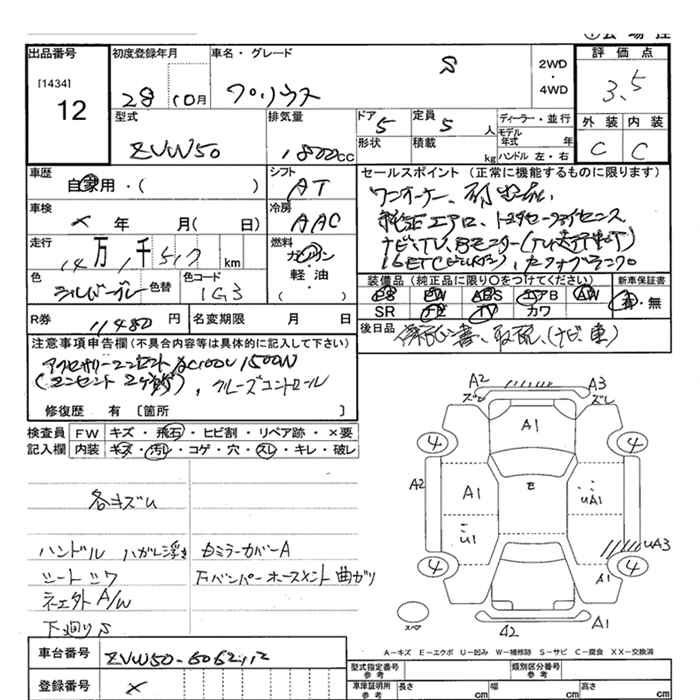 出品番号
[1434]
12
初度登録年月
28 10月
車名・グレード
プリウス S
2WD
・
4WD
評価点
3.5
外装 内装
C C
型式
ZVW50
排気量
1800cc
ドア 5
定員 5 人
形状
積載 kg
ディーラー・並行
モデル年式 年
ハンドル 左・右
車歴
自家用・( )
シフト
AT
車検
× 年 月( 日)
冷房
AAC
走行
14万1千517 km
燃料
ガソリン
・
軽・油
( )
色
シルバーグレー
色替
色コード
1G3
セールスポイント (正常に機能するものに限ります)
ワンオーナー、
ナビ、TV、Bモニター
装備品(純正品に限り〇をつけてください)
新車保証書
PS PW ABS エアB AW
SR TV カワ
有・無
後日品
R券
11480 円
名変期限 月 日
注意事項申告欄(不具合内容等は具体的に記入して下さい)
アクセサリーコンセント AC100V 1500W
(コンセント 2ヶ所)、クルーズコントロール
修復歴 有 [箇所 ]
検査員
記入欄
FW キズ・飛石・ヒビ割・リペア跡・×要
内装 キズ・汚レ・コゲ・穴・スレ・キレ・破レ
各キズU
ハンドル ハガレ浮き
シートシワ
A/W
下廻りS
カミラーカバーA
フバンパーホースメント曲ガリ
A2 A3
ズレ ズレ
A1
4 4
A2 A1 E UA1
U1
UA3
4 4
A1
スペア
A2 A1
A-キズ E-エクボ U-凹み W-補修跡 S-サビ C-腐食 XX-交換済
車台番号
登録番号
×
型式指定番号
参考
類別区分番号
参考
車庫証明用
参考
長さ cm
幅 cm
高さ cm